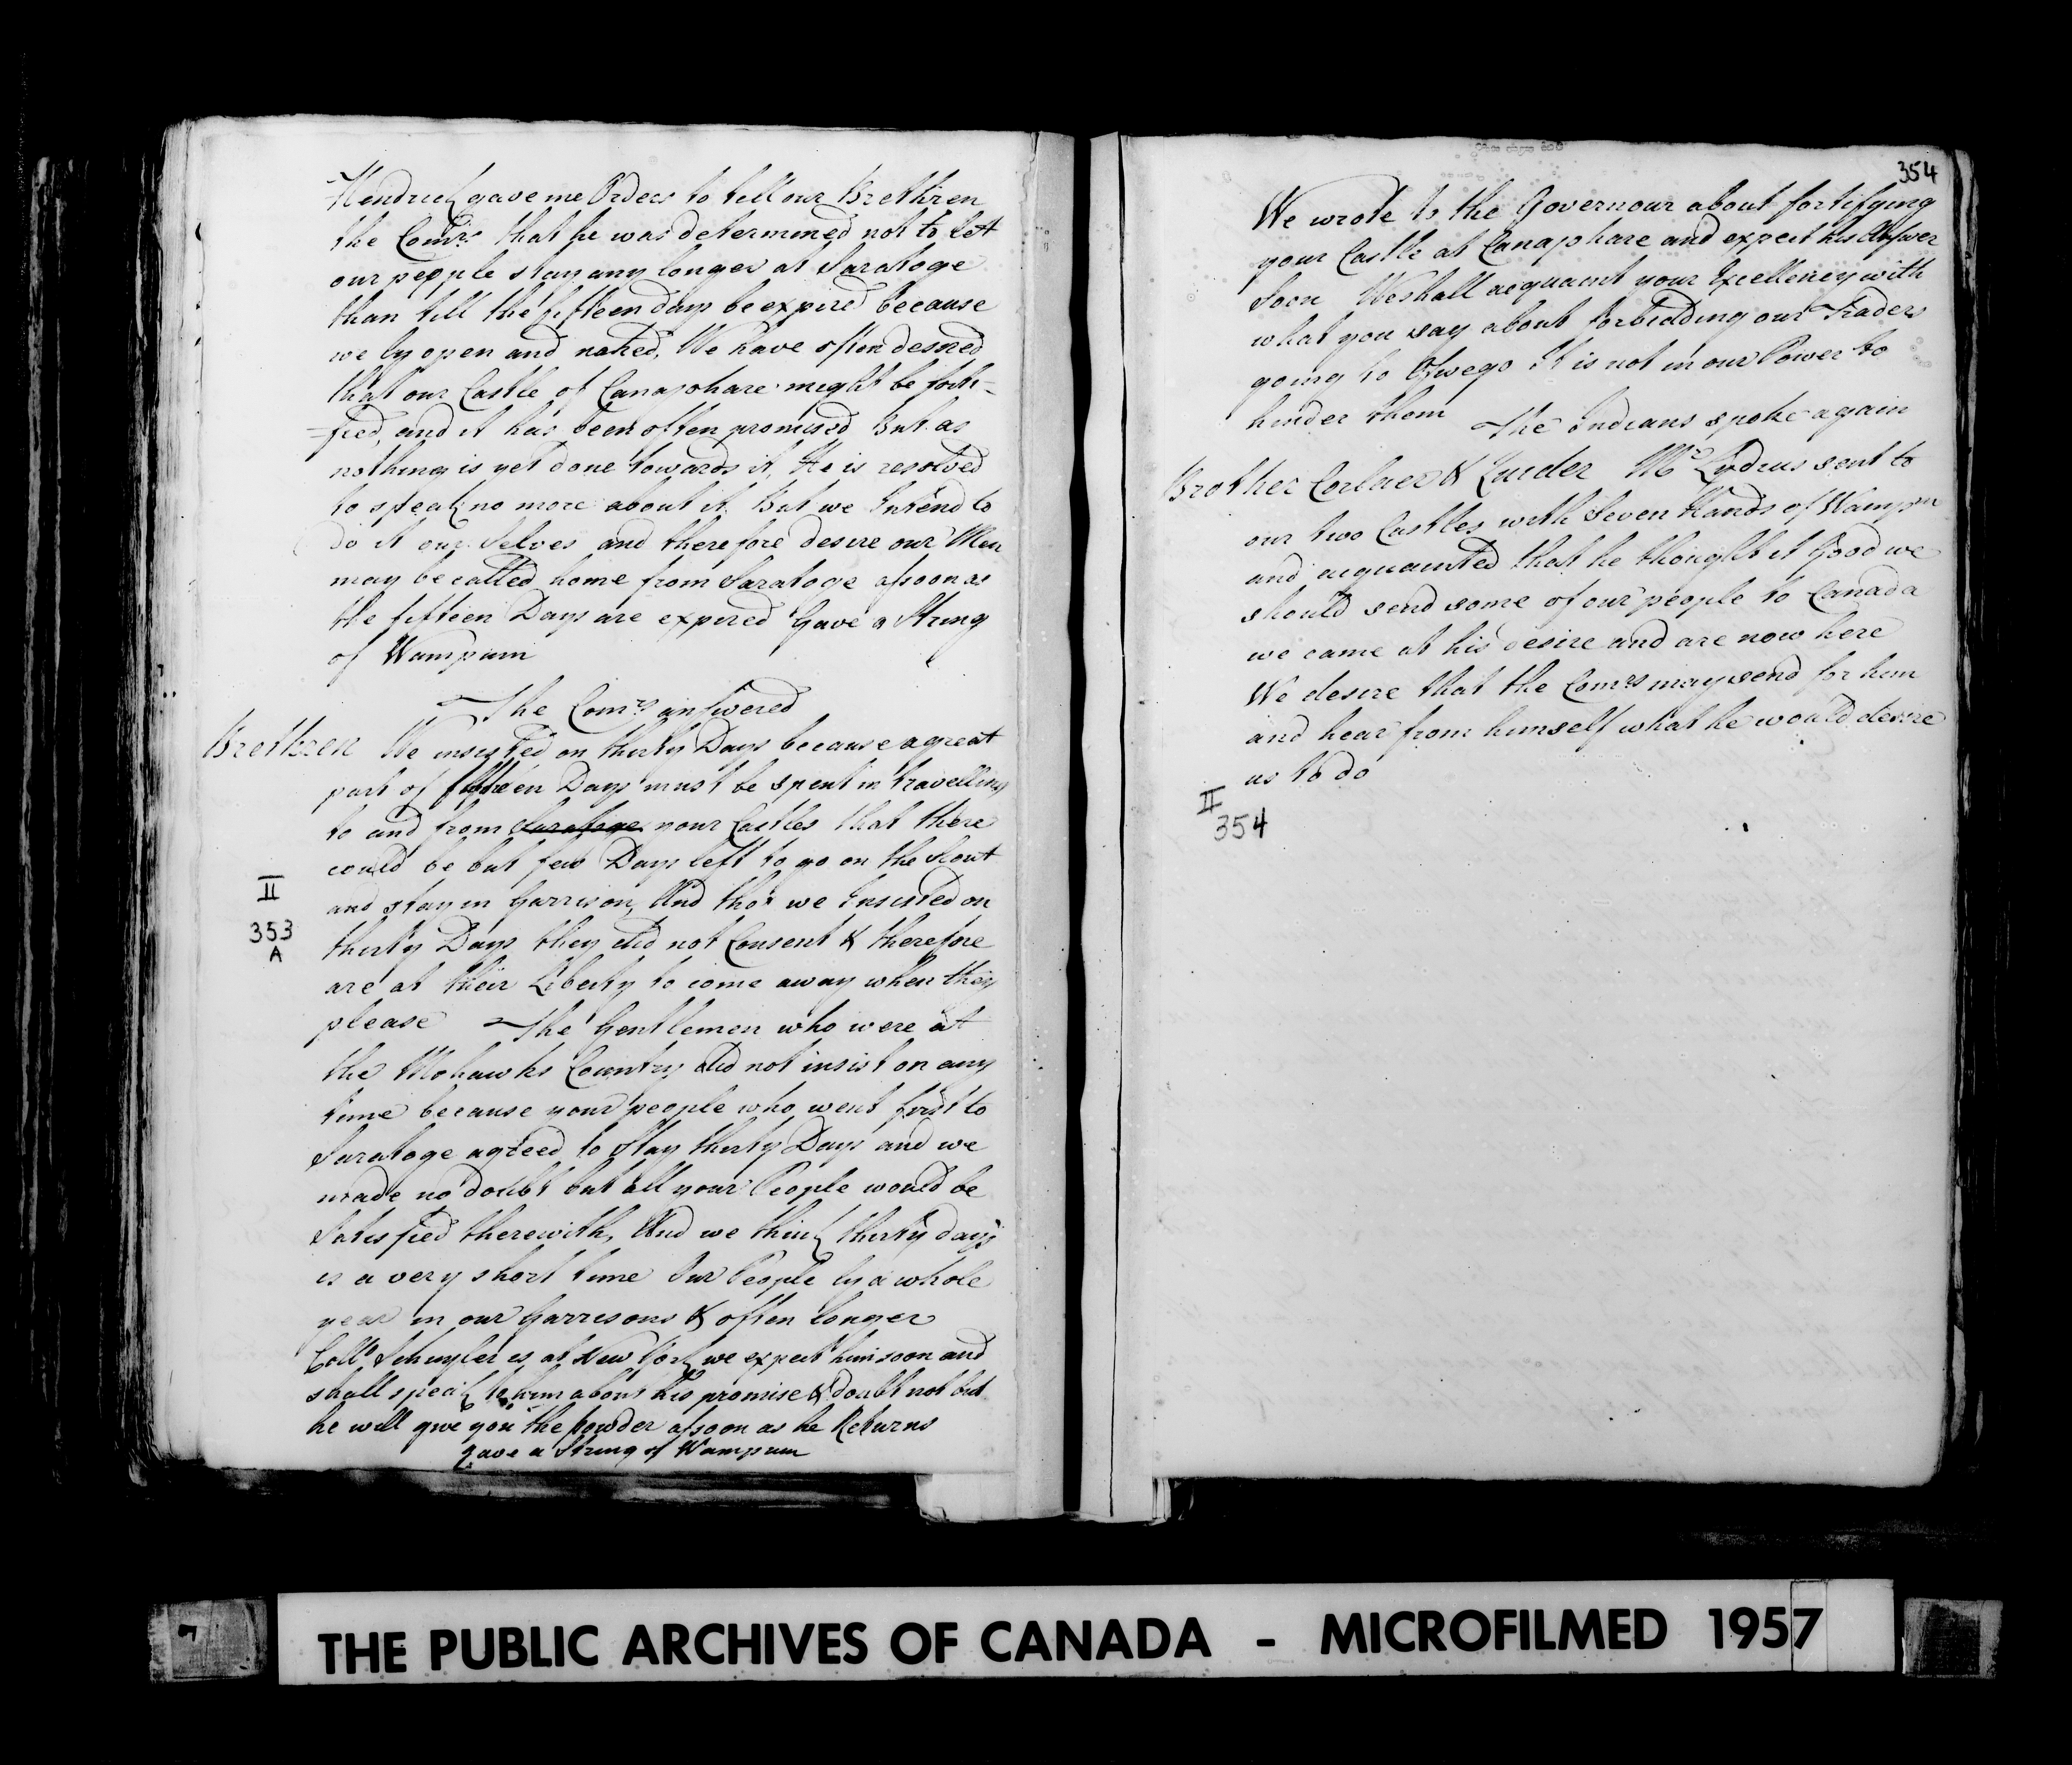 Hendrick gave me Orders to tell our Brethren
the Comrs. that he was determined not to lett
our people stay any longer at Saratoge
than till the fifteen days be expired because
we ly open and naked, We have often desired
that our Castle of Canajohare might be forti=
=fied, and it has been often promised But as
nothing is yet done towards it, He is resolved
to speak no more about it But we Intend to
do it our Selves and therefore desire our Men
may be called home from Saratoge assoon as
the fifteen Days are expired Gave a String
of Wampum
The Comrs. answered
Brethren We insisted on thirty Days because a great
part of fifteen Days must be spent in travelling
to and from Saratoge your Castles that there
could be but few Days left to go on the Scout
and stay in Garrison, And tho' we Insisted on
thirty Days they did not Consent & therefore
are at their Liberty to come away when they
please The Gentlemen who were at
II
353
A
the Mohawks Country did not insist on any
time because your people who went first to
Saratoge agreed to Stay thirty Days and we
made no doubt but all your People would be
Satisfied therewith, And we think thirty days
is a very short time Our People ly a whole
year in our Garrisons & often longer
Collo. Schuyler is at New York we expect him soon and
shall speak to him about his promise & doubt not but
he will give you the powder assoon as he Returns
gave a String of Wampum
354
We wrote to the Governour about fortifying
your Castle at Canajohare and expect his Answer
Soon We shall acquaint your Excellency with
what you say about forbidding our Traders
going to Oswego It is not in our Power to
hinder them The Indians spoke again
Brother Corlaer & Quider Mr. Lydius sent to
our two Castles with Seven Hands of Wampm
and acquainted that he thought it Good we
should send some of our people to Canada
we came at his desire and are now here
We desire that the Comrs may send for him
and hear from himself what he would desire
us to do
II
354
THE PUBLIC ARCHIVES OF CANADA - MICROFILMED 1957